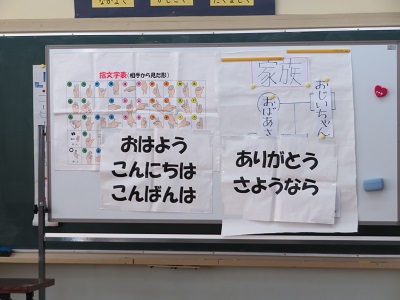 なかよく
たくましく
指文字表(相手から見た形)
家族
おじいちゃん
おばあさ
おはよう
こんにちは
こんばんは
ありがとう
さようなら